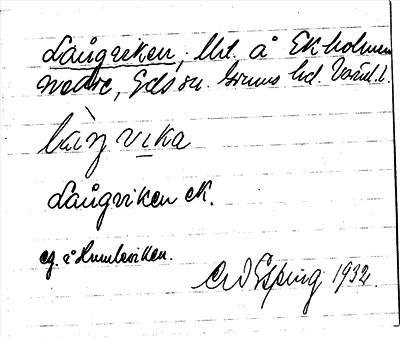 Långviken, lht. å Ekholmen
nedre, Eds sn. Grums hd. Värml. l.
låŋ vika
Långviken ek.
eg. å Humleviken.
C W Esping 1932.